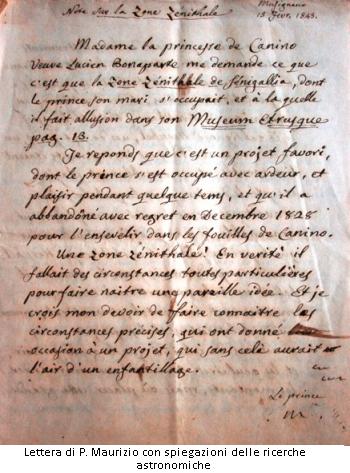 Note sur la Zone Zénithale.
Musignano
15 Fevr. 1843.
Madame la princesse de Canino
Veuve Lucien Bonaparte me demande ce que
c'est que la Zone Zénithale de Sénigallia, dont
le prince son mari s'occupait, et à la quelle
il fait allusion dans son Museum Etrusque
pag. 13.
Je reponds que c'est un projet favori,
dont le prince s'est occupé avec ardeur, et
plaisir pendant quelque tems, et qu'il a
abandóné avec regret en Decembre 1828
pour l'ensevelir dans les fouilles de Canino.
Une Zone Zénithale! En verité il
fallait des circonstances toutes particulières
pour faire naitre une pareille idée. Et je
crois mon devoir de faire connaitre les
circonstances précises, qui ont donné
occasion à un projet, qui sans celà aurait
l'air d'un enfantillage.
Le prince
Lettera di P. Maurizio con spiegazioni delle ricerche
astronomiche